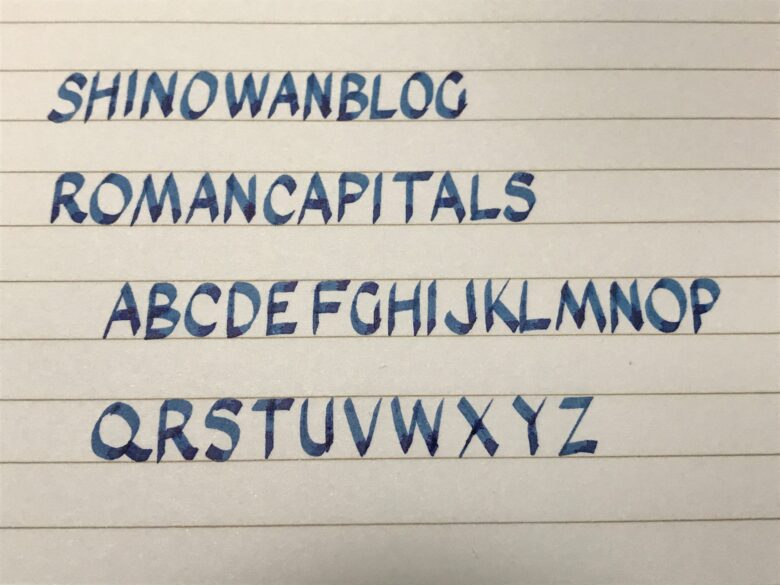 SHINOWANBLOG
ROMANCAPITALS
ABCDEFGHIJKLMNOP
QRSTUVWXYZ